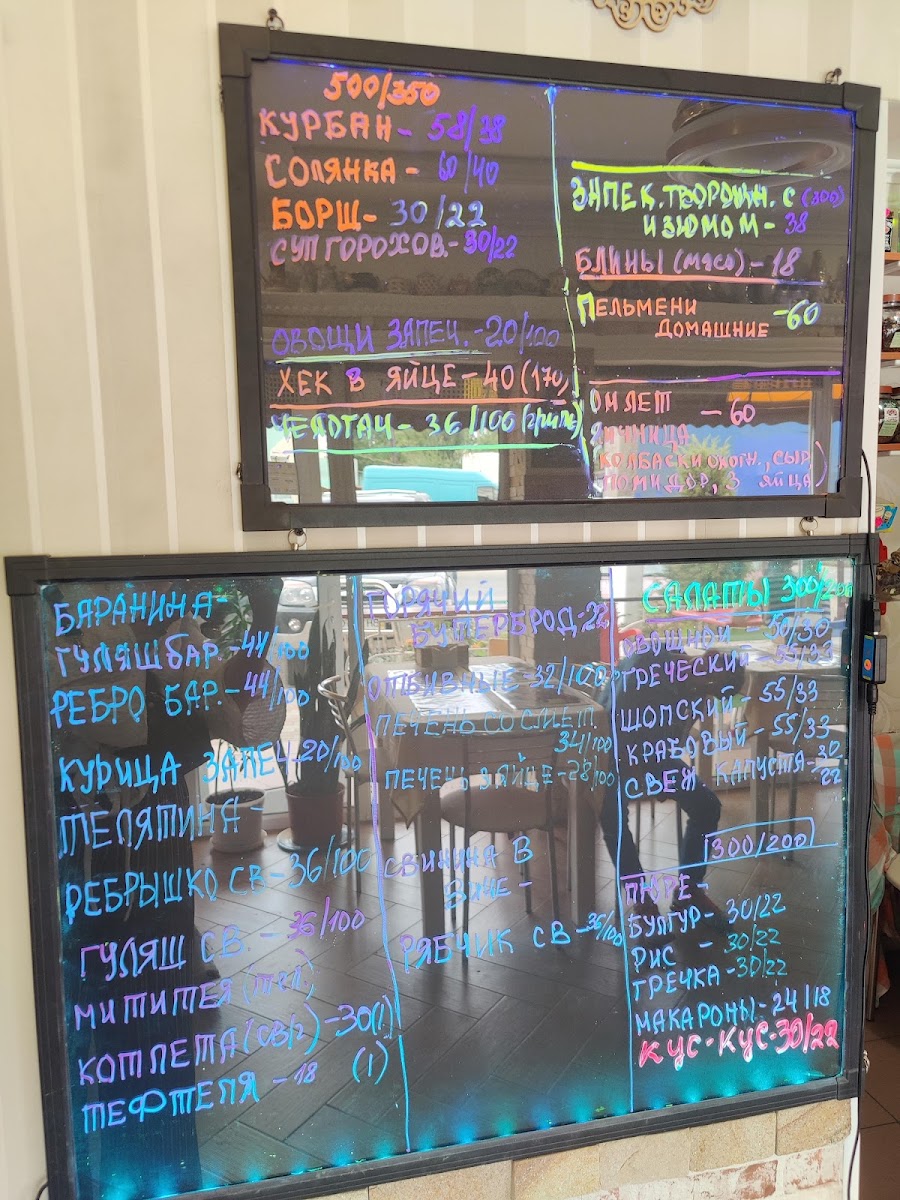 500/350
КУРБАН - 58/38
СОЛЯНКА - 60/40
БОРЩ - 30/22
СУП ГОРОХОВ. - 30/22
ОВОЩИ ЗАПЕЧ. - 20/100
ХЕК В ЯЙЦЕ - 40 (170)
ЧЕЛОГАЧ - 36/100 (гриль)
ЗАПЕК. ТВОРОЖН. С (300)
ИЗЮМОМ - 38
БЛИНЫ (мясо) - 18
ПЕЛЬМЕНИ
ДОМАШНИЕ - 60
ОМЛЕТ
- 60
ЯИЧНИЦА
(КОЛБАСКИ ОХОТН., СЫР
ПОМИДОР, 3 ЯЙЦА)
БАРАНИНА -
ГУЛЯШ БАР. - 44/100
РЕБРО БАР. - 44/100
КУРИЦА ЗАПЕЧ. 20/100
ТЕЛЯТИНА -
РЕБРЫШКО СВ. - 36/100
ГУЛЯШ СВ. - 36/100
МИТИТЕЯ (тел)
КОТЛЕТА (СВ/г) - 30 (1)
ТЕФТЕЛЯ - 18 (1)
ГОРЯЧИЙ
БУТЕРБРОД - 22
ОТБИВНЫЕ - 32/100
ПЕЧЕНЬ СО СМЕТ.
34/100
ПЕЧЕНЬ ЯЙЦЕ - 28/100
СВИНИНА В
ВИНЕ -
РЯБЧИК СВ - 36/100
САЛАТЫ 300/200
ОВОЩНОЙ - 50/30
ГРЕЧЕСКИЙ - 55/33
ШОПСКИЙ - 55/33
КРАБОВЫЙ - 55/33
СВЕЖ КАПУСТА - 30
22
300/200
ПЮРЕ -
БУЛГУР - 30/22
РИС - 30/22
ГРЕЧКА - 30/22
МАКАРОНЫ - 24/18
КУС-КУС - 30/22